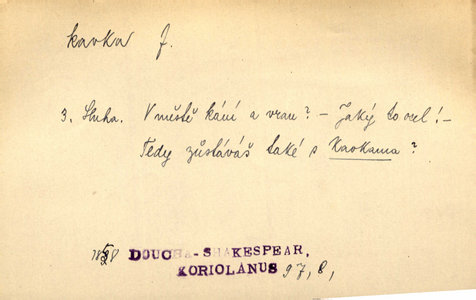 kavka f.
3. Sluha. V městě kání a vran? - Jaký to osel! -
Tedy zůstáváš také s Kavkama?
DOUCHA-SHAKESPEAR,
KORIOLANUS 97, 8,